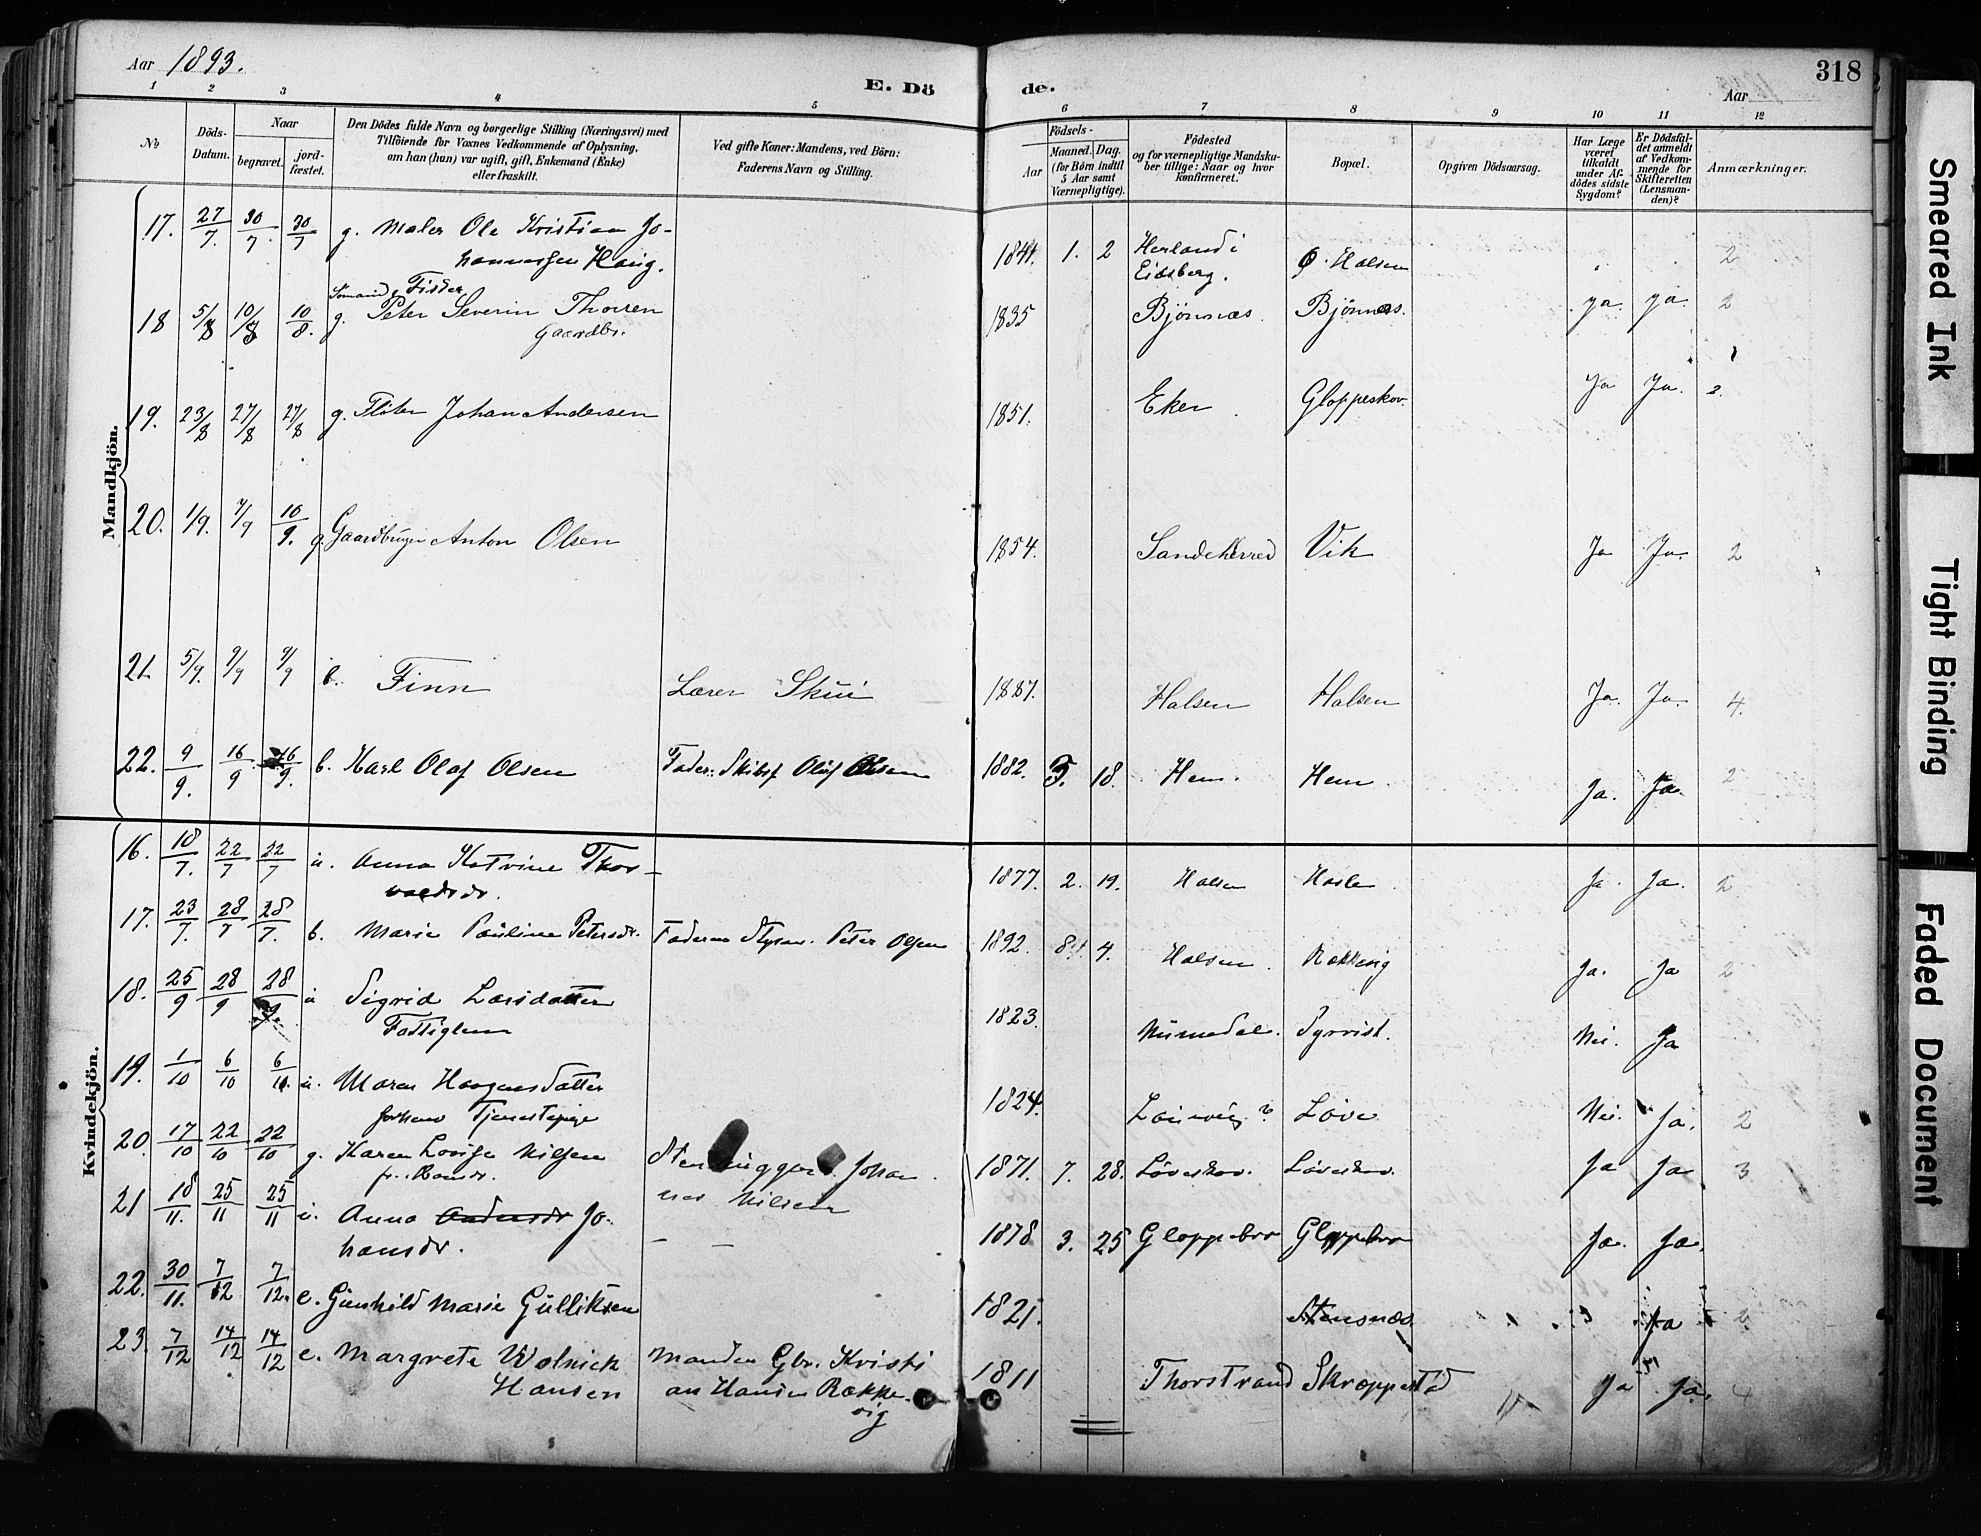 Aar 1893.
E. Dö de.
318
Aar
1 2 3 4 5 6 7 8 9 10 11 12
No
Döds-Datum.
Naar
begravet.
jord-fæstet.
Den Dödes fulde Navn og borgerlige Stilling (Næringsvei) med
Tilföiende for Voxnes Vedkommende af Oplysning,
om han (hun) var ugift, gift, Enkemand (Enke)
eller fraskilt.
Ved gifte Koner: Mandens, ved Börn:
Faderens Navn og Stilling.
Födsels-
Aar
Maaned.
Dag.
(for Börn indtil
5 Aar samt
Værnepligtige).
Födested
og for værnepligtige Mandska-
ber tillige: Naar og hvor
konfirmeret.
Bopæl.
Opgiven Dödsaarsag.
Har Læge
været
tilkaldt
under Af-
dödes sidste
Sygdom?
Er Dödsfal-
det anmeldt
af Vedkom-
mende for
Skifteretten
(Lensman-
den)?
Anmærkninger.
Mandkjön.
17. 27/7. 30/7. 30/7 g. Maler Ole Kristian Jo-
hannessen Haug. 1841. 1. 2 Herland i
Eidsberg. Ø. Halsen 2
Sömand, Fisker
18 5/8 10/8 10/8. g. Peter Severin Thorsen
Gaardbr. 1835 Bjönnæs. Bjönnæs. ja. ja. 2
19. 23/8 27/8 27/8 g. Flöter Johan Andersen 1851. Eker. Gloppeskov. Ja Ja. 2.
20. 1/9. 7/9 10/9. g. Gaardbruger Anton Olsen 1854. Sandeherred Vik Ja Ja. 2
21. 5/9. 9/9 9/9 b. Finn Lærer Skui 1887. Halsen Halsen Ja. Ja. 4.
22. 9/9. 16/9 16/9. b. Karl Olaf Olsen Fader: Skibsf Oluf Olsen 1882. 5. 18. Hem. Hem. Ja. Ja. 2
Kvindekjön.
16. 18/7. 22/7 22/7 u. Anna Katrine Thor-
valdsdr. 1877. 2. 19. Halsen Hasle. Ja. Ja. 2
17. 23/7. 28/7 28/7. b. Marie Pauline Petersdr. Faderen Styrm. Peter Olsen 1892. 8 4. Halsen. Rækkevig Ja. Ja 2
18. 25/9 28/9 28/9 u Sigrid Larsdatter
Fattiglem 1823. Numedal. Syrrist. Nei. Ja
19. 1/10 6/10 6/10. u. Maren Haagensdatter
forhenv Tjenestepige 1824. Laurvig? Löve Nei. Ja. 2
20. 17/10 22/10 22/10 g. Karen Lovise Nilsen
f. Stenhugger Johan
nes Nilsen 1871. 7. 28. Löveskov. Löveskov. Ja Ja 3
21 18/11. 25/11 25/11 u. Anna Andersdr Jo-
hansdr. — — 1878 3. 25 Gloppebro Gloppebro Ja. Ja.
22. 30/11. 7/12 7/12. e. Gunhild Marie Gulliksen 1821. Stensnæs. Ja 2
23. 7/12 14/12 14/12 e. Margrete Wolnick
Hansen Manden Gbr. Kristi
an Hansen Række-
vig 1811 Thorstrand Skræppestad Ja Ja. 4
Smeared Ink
Tight Binding
Faded Document